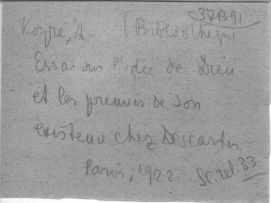 37B91
Koyré, A [Bibliothèque
Essai sur l'idée de Dieu
et les preuves de son
existence chez Descartes.
Paris, 1922. Sc. rel. 33